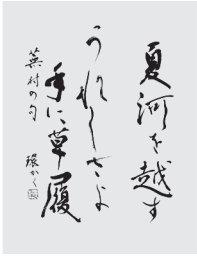 夏河を越す
うれしさよ
手に草履
蕪村の句
環かく